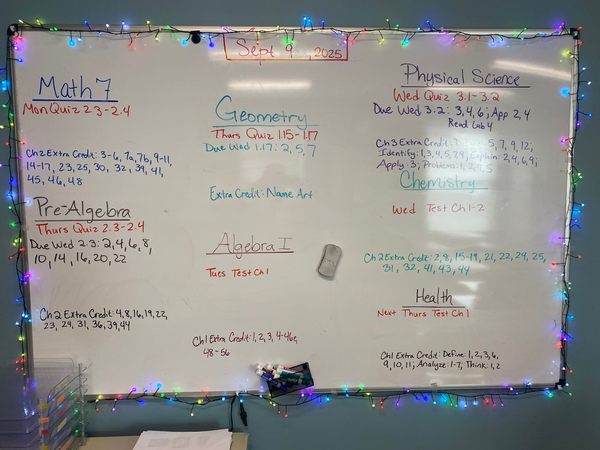 Sept 9, 2025
Math 7
Mon Quiz 2.3-2.4
Ch2 Extra Credit: 3-6, 7a, 7b, 9-11,
14-17, 23, 25, 30, 32, 39, 41,
45, 46, 48
Pre-Algebra
Thurs Quiz 2.3-2.4
Due Wed 2.3: 2, 4, 6, 8,
10, 14, 16, 20, 22
Ch 2 Extra Credit: 4, 8, 16, 19, 22,
23, 29, 31, 36, 39, 44
Geometry
Thurs Quiz 1.15-1.17
Due Wed 1.17: 2, 5, 7
Extra Credit: Name Art
Algebra I
Tues Test Ch 1
Ch1 Extra Credit: 1, 2, 3, 4-46e,
48-56
Physical Science
Wed Quiz 3.1-3.2
Due Wed 3.2: 3, 4, 6; App 2, 4
Read Lab 4
Ch3 Extra Credit: 5, 7, 9, 12,
Identify: 1, 3, 4, 5, 7, 9, Explain: 2, 4, 6, 9;
Apply: 3, Problems: 5
Chemistry
Wed Test Ch 1-2
Ch2 Extra Credit: 2, 9, 15-19, 21, 22, 24, 25,
31, 32, 41, 43, 44
Health
Next Thurs Test Ch 1
Ch1 Extra Credit: Define: 1, 2, 3, 6,
9, 10, 11, Analyze: 1-7, Think: 1, 2